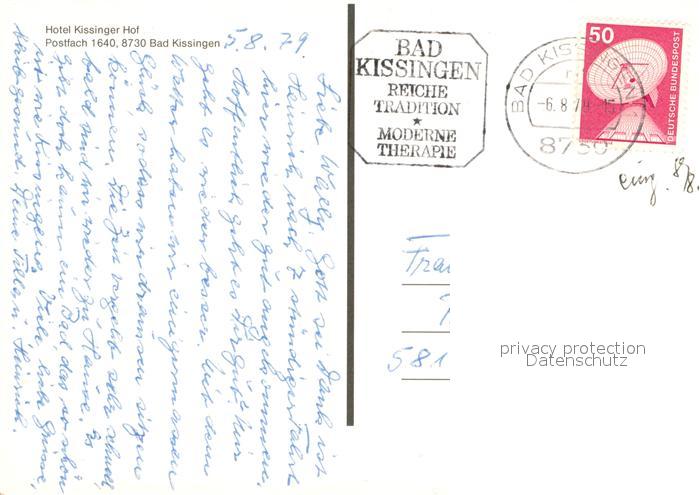 Hotel Kissinger Hof
Postfach 1640, 8730 Bad Kissingen
5.8.79
Liebe Wally, Gott sei Dank ist
Heinrich nach 7 stündiger Fahrt
hier wieder gut angekommen.
Hoffentlich geht es Dir gut. Mir
geht es wieder besser. Mit dem
Wetter haben wir einigermassen
Glück, so dass wir draussen sitzen
können. Die Zeit vergeht sehr schnell,
bald sind wir wieder zu Hause. Es
gibt doch kaum ein Bad das so schön
ist wie Kissingen. Viele liebe Grüsse,
bleib gesund. Deine Tilla u. Heinrich.
BAD
KISSINGEN
REICHE
TRADITION
★
MODERNE
THERAPIE
BAD KISSINGEN
-6.8.79
8730
50
DEUTSCHE BUNDESPOST
eing. 8/8.
581
privacy protection
Datenschutz